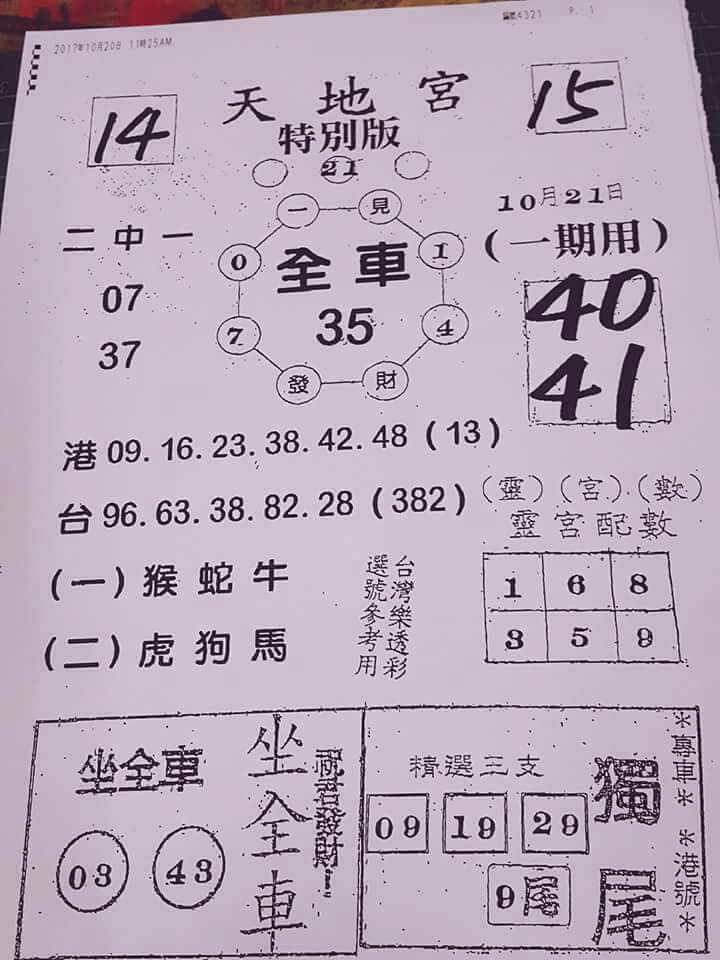 2017年10月20日 11時25AM
4321 P. 1
天地宮
14
15
特別版
21
10月21日
(一期用)
二中一
07
37
一見
0 1
全車
35
7 4
發財
40
41
港 09. 16. 23. 38. 42. 48 (13)
台 96. 63. 38. 82. 28 (382)
(靈) (宮) (數)
靈宮配數
(一) 猴蛇牛
(二) 虎狗馬
台灣樂透彩
選號參考用
1 6 8
3 5 9
坐全車
03 43
坐全車
發財
精選三支
09 19 29
9尾
獨尾
*專車* *港號*